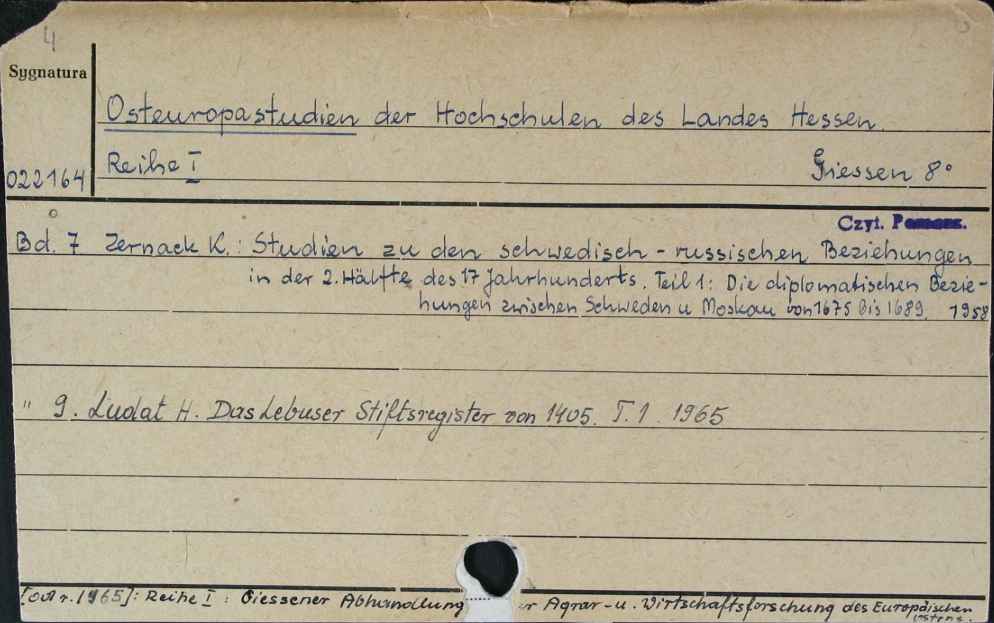 4
Sygnatura
Osteuropastudien der Hochschulen des Landes Hessen.
022164
Reihe I
Giessen 8°
Czyt.
Bd. 7 Zernack K.: Studien zu den schwedisch - russischen Beziehungen
in der 2. Hälfte des 17 Jahrhunderts. Teil 1: Die diplomatischen Bezie-
hungen zwischen Schweden u Moskau von 1675 bis 1689. 1958
" 9. Ludat H. Das Lebuser Stiftsregister von 1405. T. 1. 1965
[od r. 1965]: Reihe I : Giessener Abhandlung r Agrar - u. Wirtschaftsforschung des Europäischen
Ostens.